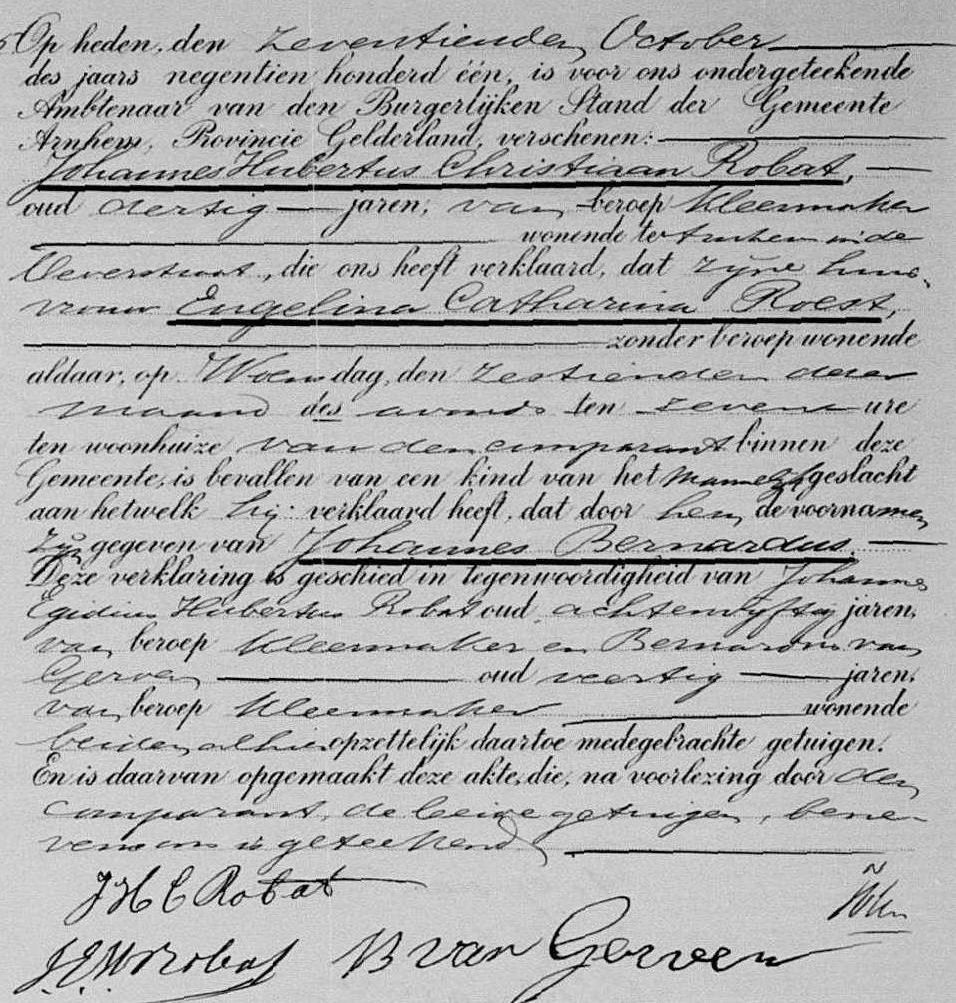 Op heden, den zeventienden October
des jaars negentien honderd één, is voor ons ondergeteekende
Ambtenaar van den Burgerlijken Stand der Gemeente
Arnhem, Provincie Gelderland, verschenen:
Johannes Hubertus Christiaan Robat,
oud dertig jaren, van beroep kleermaker
wonende te Arnhem in de
Oeverstraat, die ons heeft verklaard, dat zijne huis-
vrouw Engelina Catharina Roest,
zonder beroep wonende
aldaar, op Woensdag, den zestienden dezer
maand des avonds ten zeven ure
ten woonhuize van den comparant binnen deze
Gemeente, is bevallen van een kind van het mannelijk geslacht
aan hetwelk hij verklaard heeft, dat door hem de voornamen
zijn gegeven van Johannes Bernardus.
Deze verklaring is geschied in tegenwoordigheid van Johannes
Egidius Hubertus Robat oud achtenvijftig jaren,
van beroep kleermaker en Bernardus van
Gerven oud veertig jaren,
van beroep kleermaker wonende
beiden alhier opzettelijk daartoe medegebrachte getuigen.
En is daarvan opgemaakt deze akte, die, na voorlezing door den
comparant, de beide getuigen, bene-
vens ons is geteekend
J H C Robat
J. E. H. Robat B van Gerven